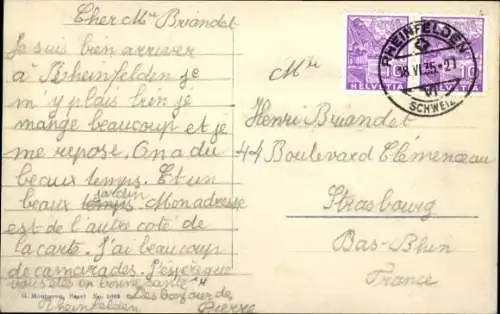 Cher Mr Briandet
Je suis bien arriver
à Rheinfelden je
m'y plais bien je
mange beaucoup et je
me repose. On a du
beaux temps. Et un
jardin
beaux temps. Mon adresse
est de l'autre coté de
la carte. J'ai beaucoup
de camarades. J'espère que
vous êtes en bonne santé
Les bonjour de
Rheinfelden Pierre
Mr
Henri Briandet
44 Boulevard Clémenceau
Strasbourg
Bas-Rhin
France
RHEINFELDEN
18.VI.35.-21
SCHWEIZ
10 10
HELVETIA HELVETIA